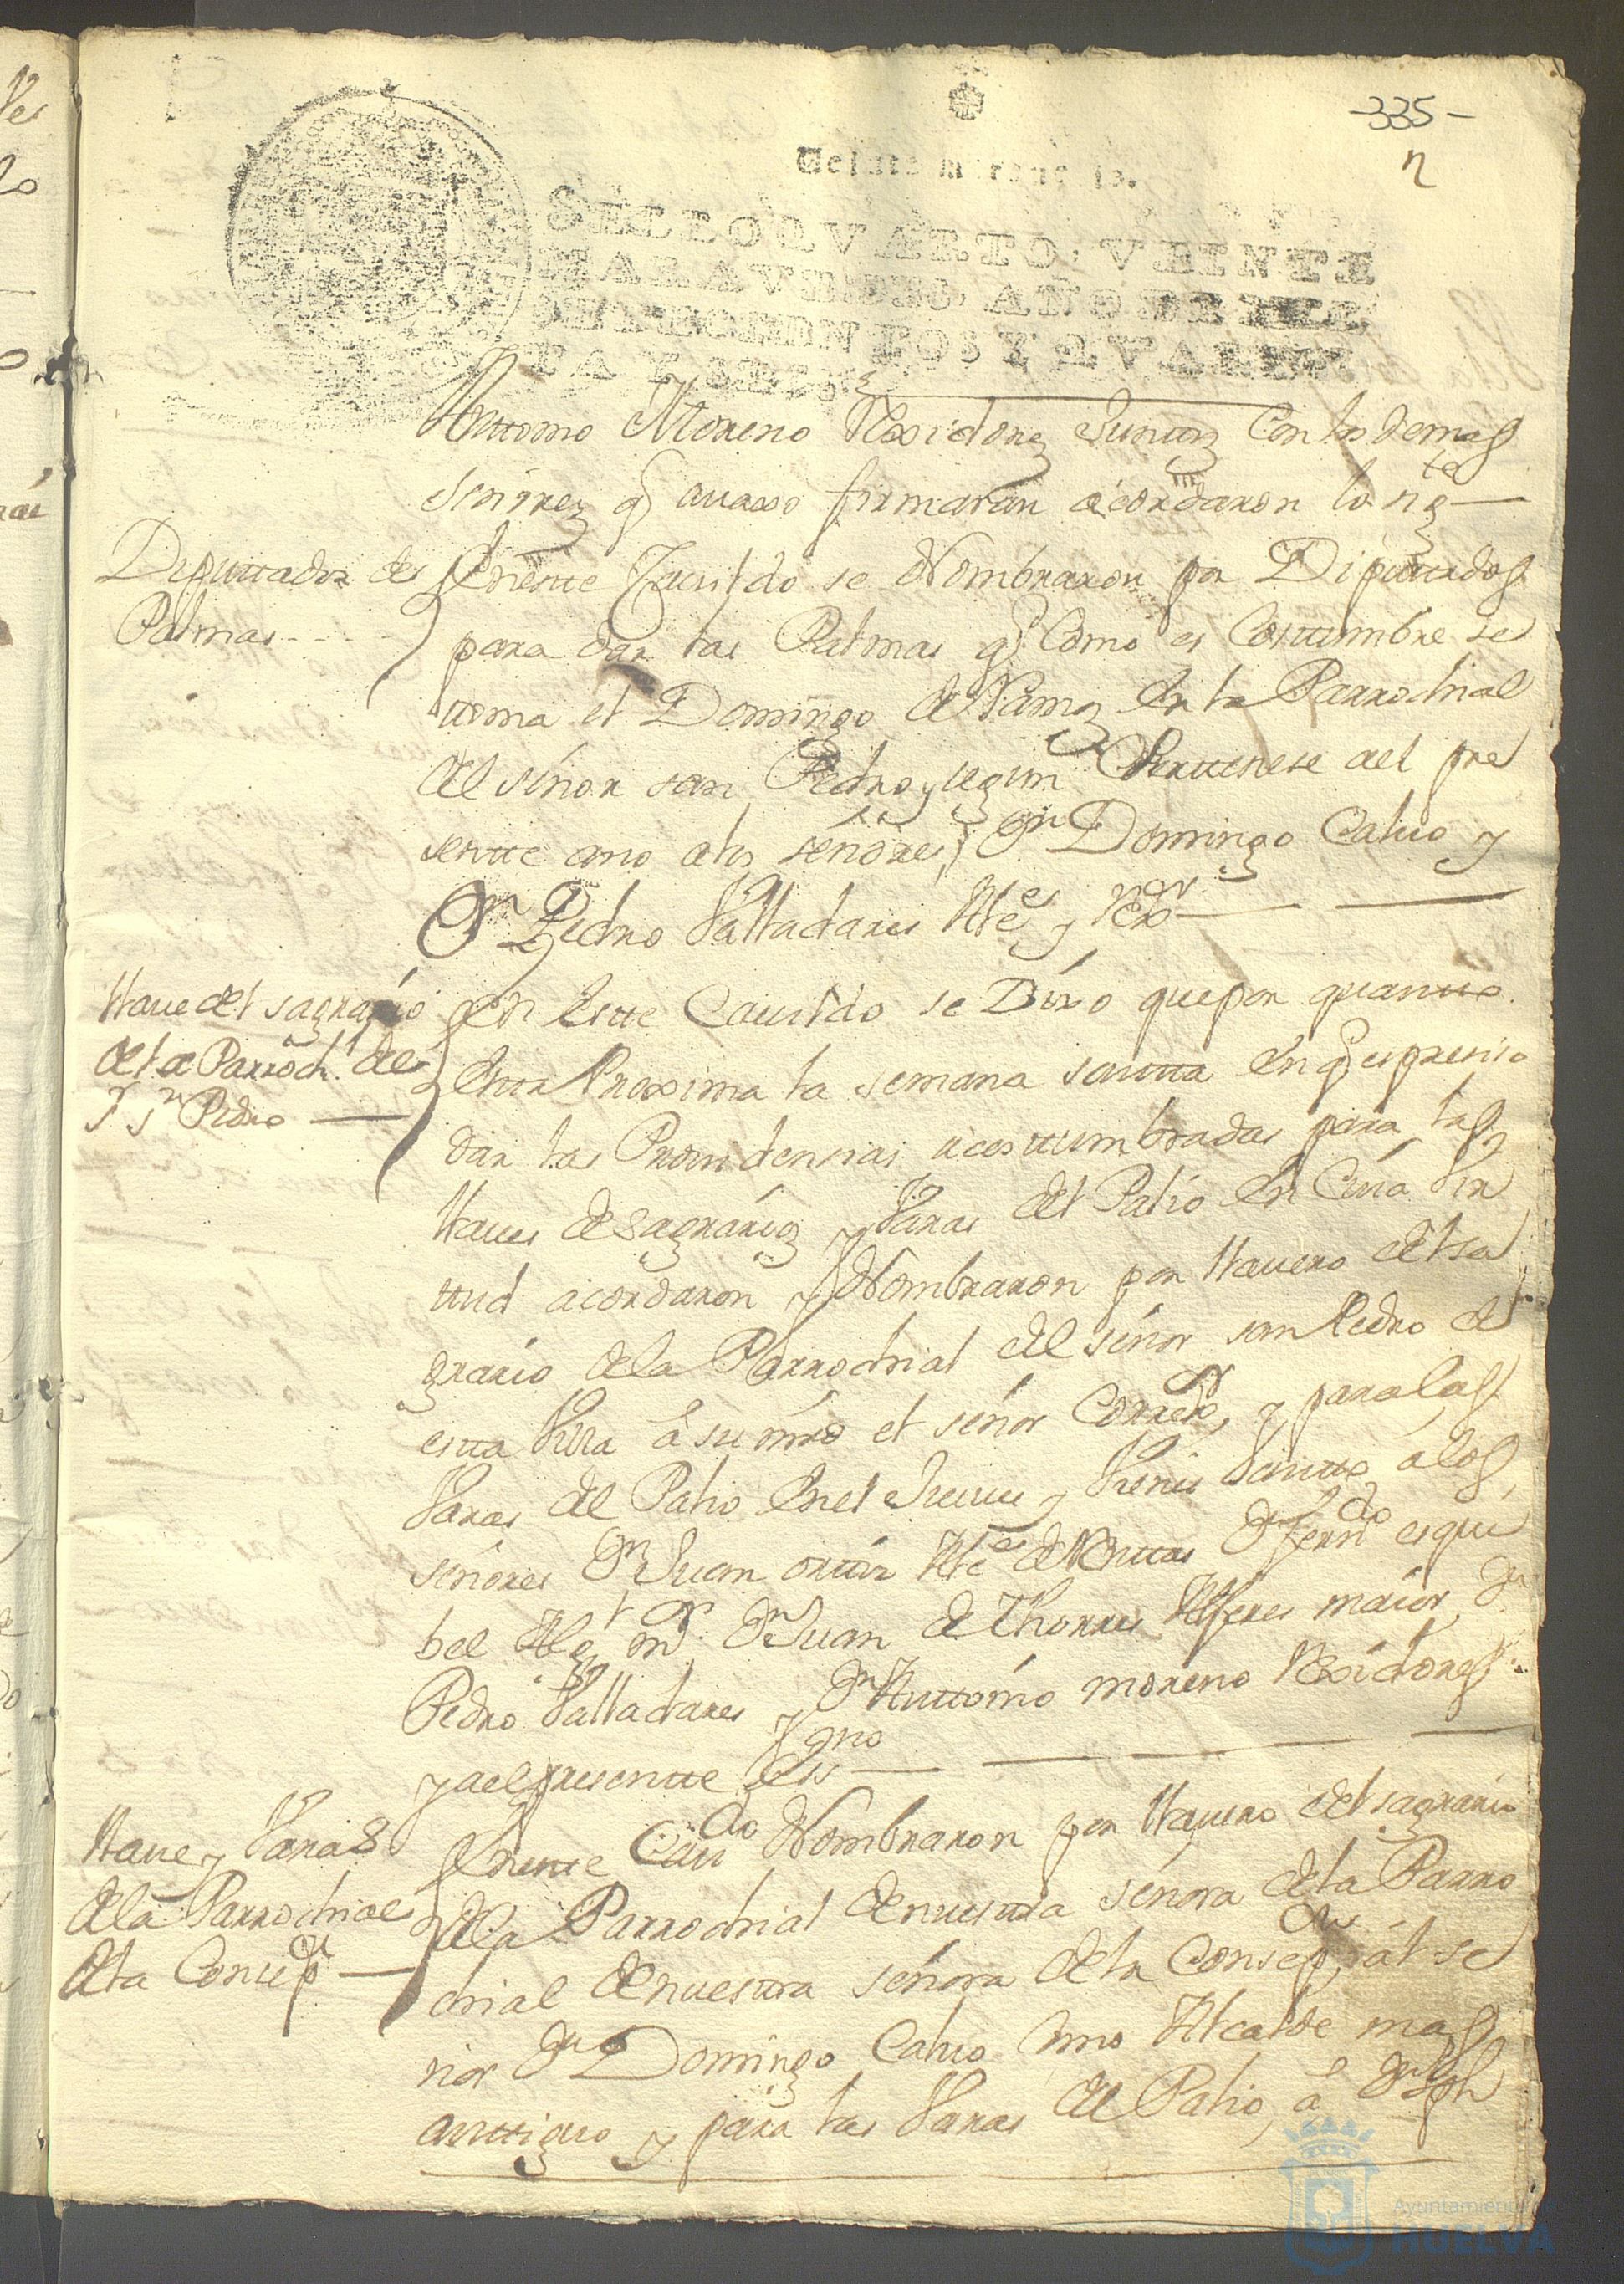 -335-
n
Veinte maravedis.
SELLO QVARTO, VEINTE
MARAVEDIS, AÑO DE MIL
SETECIENTOS Y QVAREN
TA Y
Anttonio Moreno Rexidores Junttos Con los demas
señores q avaxo firmaran acordaron lo sigte
Diputtados de
Palmas
En este Cavildo se Nombraron por Diputtados
para dar las Palmas q Como es Costtumbre se
ttoma el Domingo de Ramos En la Parrochial
del señor san Pedro, y seguir del pre
sentte ano a los señores, Dn Domingo Calvo y
Dn Pedro Valladares Alce y Rexor
llave del sagrario
de la Parrochl del
Sr Sn Pedro
En Estte Cavildo se Dixo que por quantto
Estta Proxima la semana santta En q es presiso
dar las Providensias acosttumbradas para las
llaves de sagrarios y Varas del Palio En Cuia Vir
ttud acordaron y Nombraron por llavero del sa
grario de la Parrochial del señor san Pedro de
estta Villa â su mrd el señor Correxor, y para las
Varas del Palio En el Jueves y Viernes Santto a los
señores Dn Juan orttiz Alce de Dn Ferndo esqui
bel Algl mor Dn Juan de Thorres Alferes maior, Dn
Pedro Valladares y Dn Anttonio moreno Rexidores
y a el presentte Essno
llave y Varas
de la Parrochial
de la Consepn
En este Cavdo Nombraron por llavero del sagrario
de la Parrochial de nuestra señora de la Parro
chial de nuesttra señora de la Consepon, al se
ñor Dn Domingo Calvo Como Alcalde mas
anttiguo y para las Varas del Palio, a Dn Jph
Ayuntamiento de
HUELVA